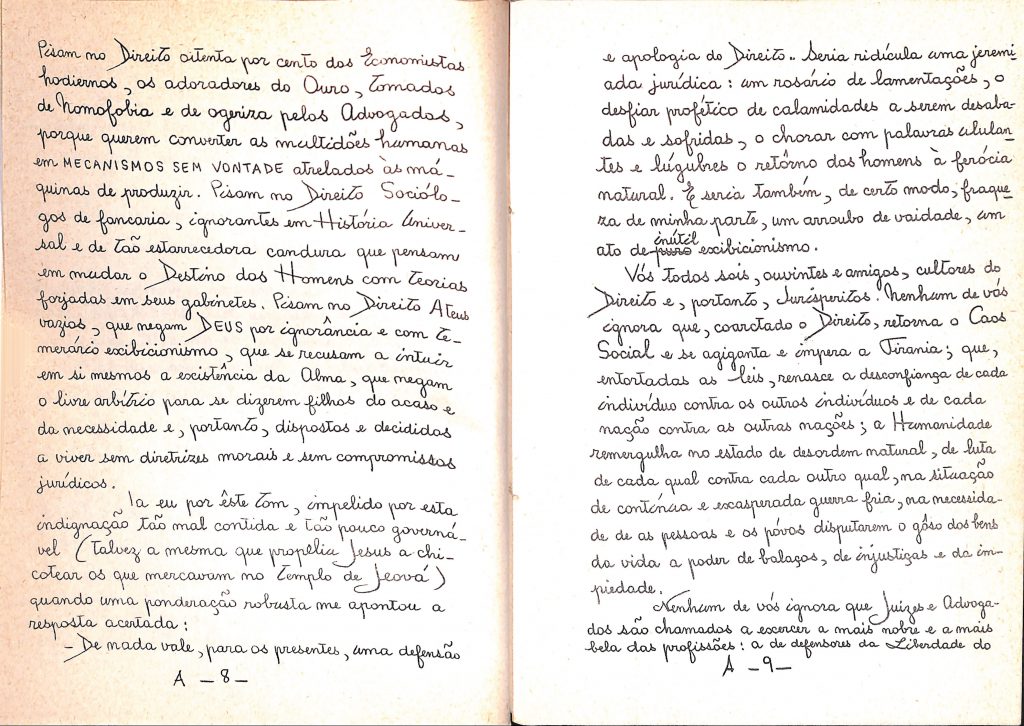 Pisam no Direito oitenta por cento dos Economistas
hodiernos, os adoradores do Ouro, tomados
de homofobia e de ogeriza pelos Advogados,
porque querem converter as multidões humanas
em MECANISMOS SEM VONTADE atrelados às má-
quinas de produzir. Pisam no Direito Sociólo-
gos de fancaria, ignorantes em História Univer-
sal e de tão estarrecedora candura que pensam
em mudar o Destino dos Homens com teorias
forjadas em seus gabinetes. Pisam no Direito Ateus
vazios, que negam DEUS por ignorância e com te-
merário exibicionismo, que se recusam a intuir
em si mesmos a existência da Alma, que negam
o livre arbítrio para se dizerem filhos do acaso e
da necessidade e, portanto, dispostos e decididos
a viver sem diretrizes morais e sem compromissos
jurídicos.
Ia eu por êste tom, impelido por esta
indignação tão mal contida e tão pouco governá-
vel (talvez a mesma que propelia Jesus a chi-
cotear os que mercavam no templo de Jeová)
quando uma ponderação robusta me apontou a
resposta acertada:
- De nada vale, para os presentes, uma defensão
A - 8 -
e apologia do Direito.. Seria ridícula uma jeremi-
ada jurídica: um rosário de lamentações, o
desfiar profético de calamidades a serem desaba-
das e sofridas, o chorar com palavras ululan-
tes e lúgubres o retôrno dos homens à ferócia
natural. E seria também, de certo modo, fraque-
za de minha parte, um arroubo de vaidade, um
ato de puro inútil exibicionismo.
Vós todos sois, ouvintes e amigos, cultores do
Direito e, portanto, Jurisperitos. Nenhum de vós
ignora que, coarctado o Direito, retorna o Caos
Social e se agiganta e impera a Tirania; que,
entortadas as leis, renasce a desconfiança de cada
indivíduo contra os outros indivíduos e de cada
nação contra as outras nações; a Humanidade
remergulha no estado de desordem natural, de luta
de cada qual contra cada outro qual, na situação
de contínua e exasperada guerra fria, na necessida-
de de as pessoas e os póvos disputarem o gôso dos bens
da vida a poder de balaços, de injustiças e da im-
piedade.
Nenhum de vós ignora que Juizes e Advoga-
dos são chamados a exercer a mais nobre e a mais
bela das profissões: a de defensores da Liberdade do
A - 9 -